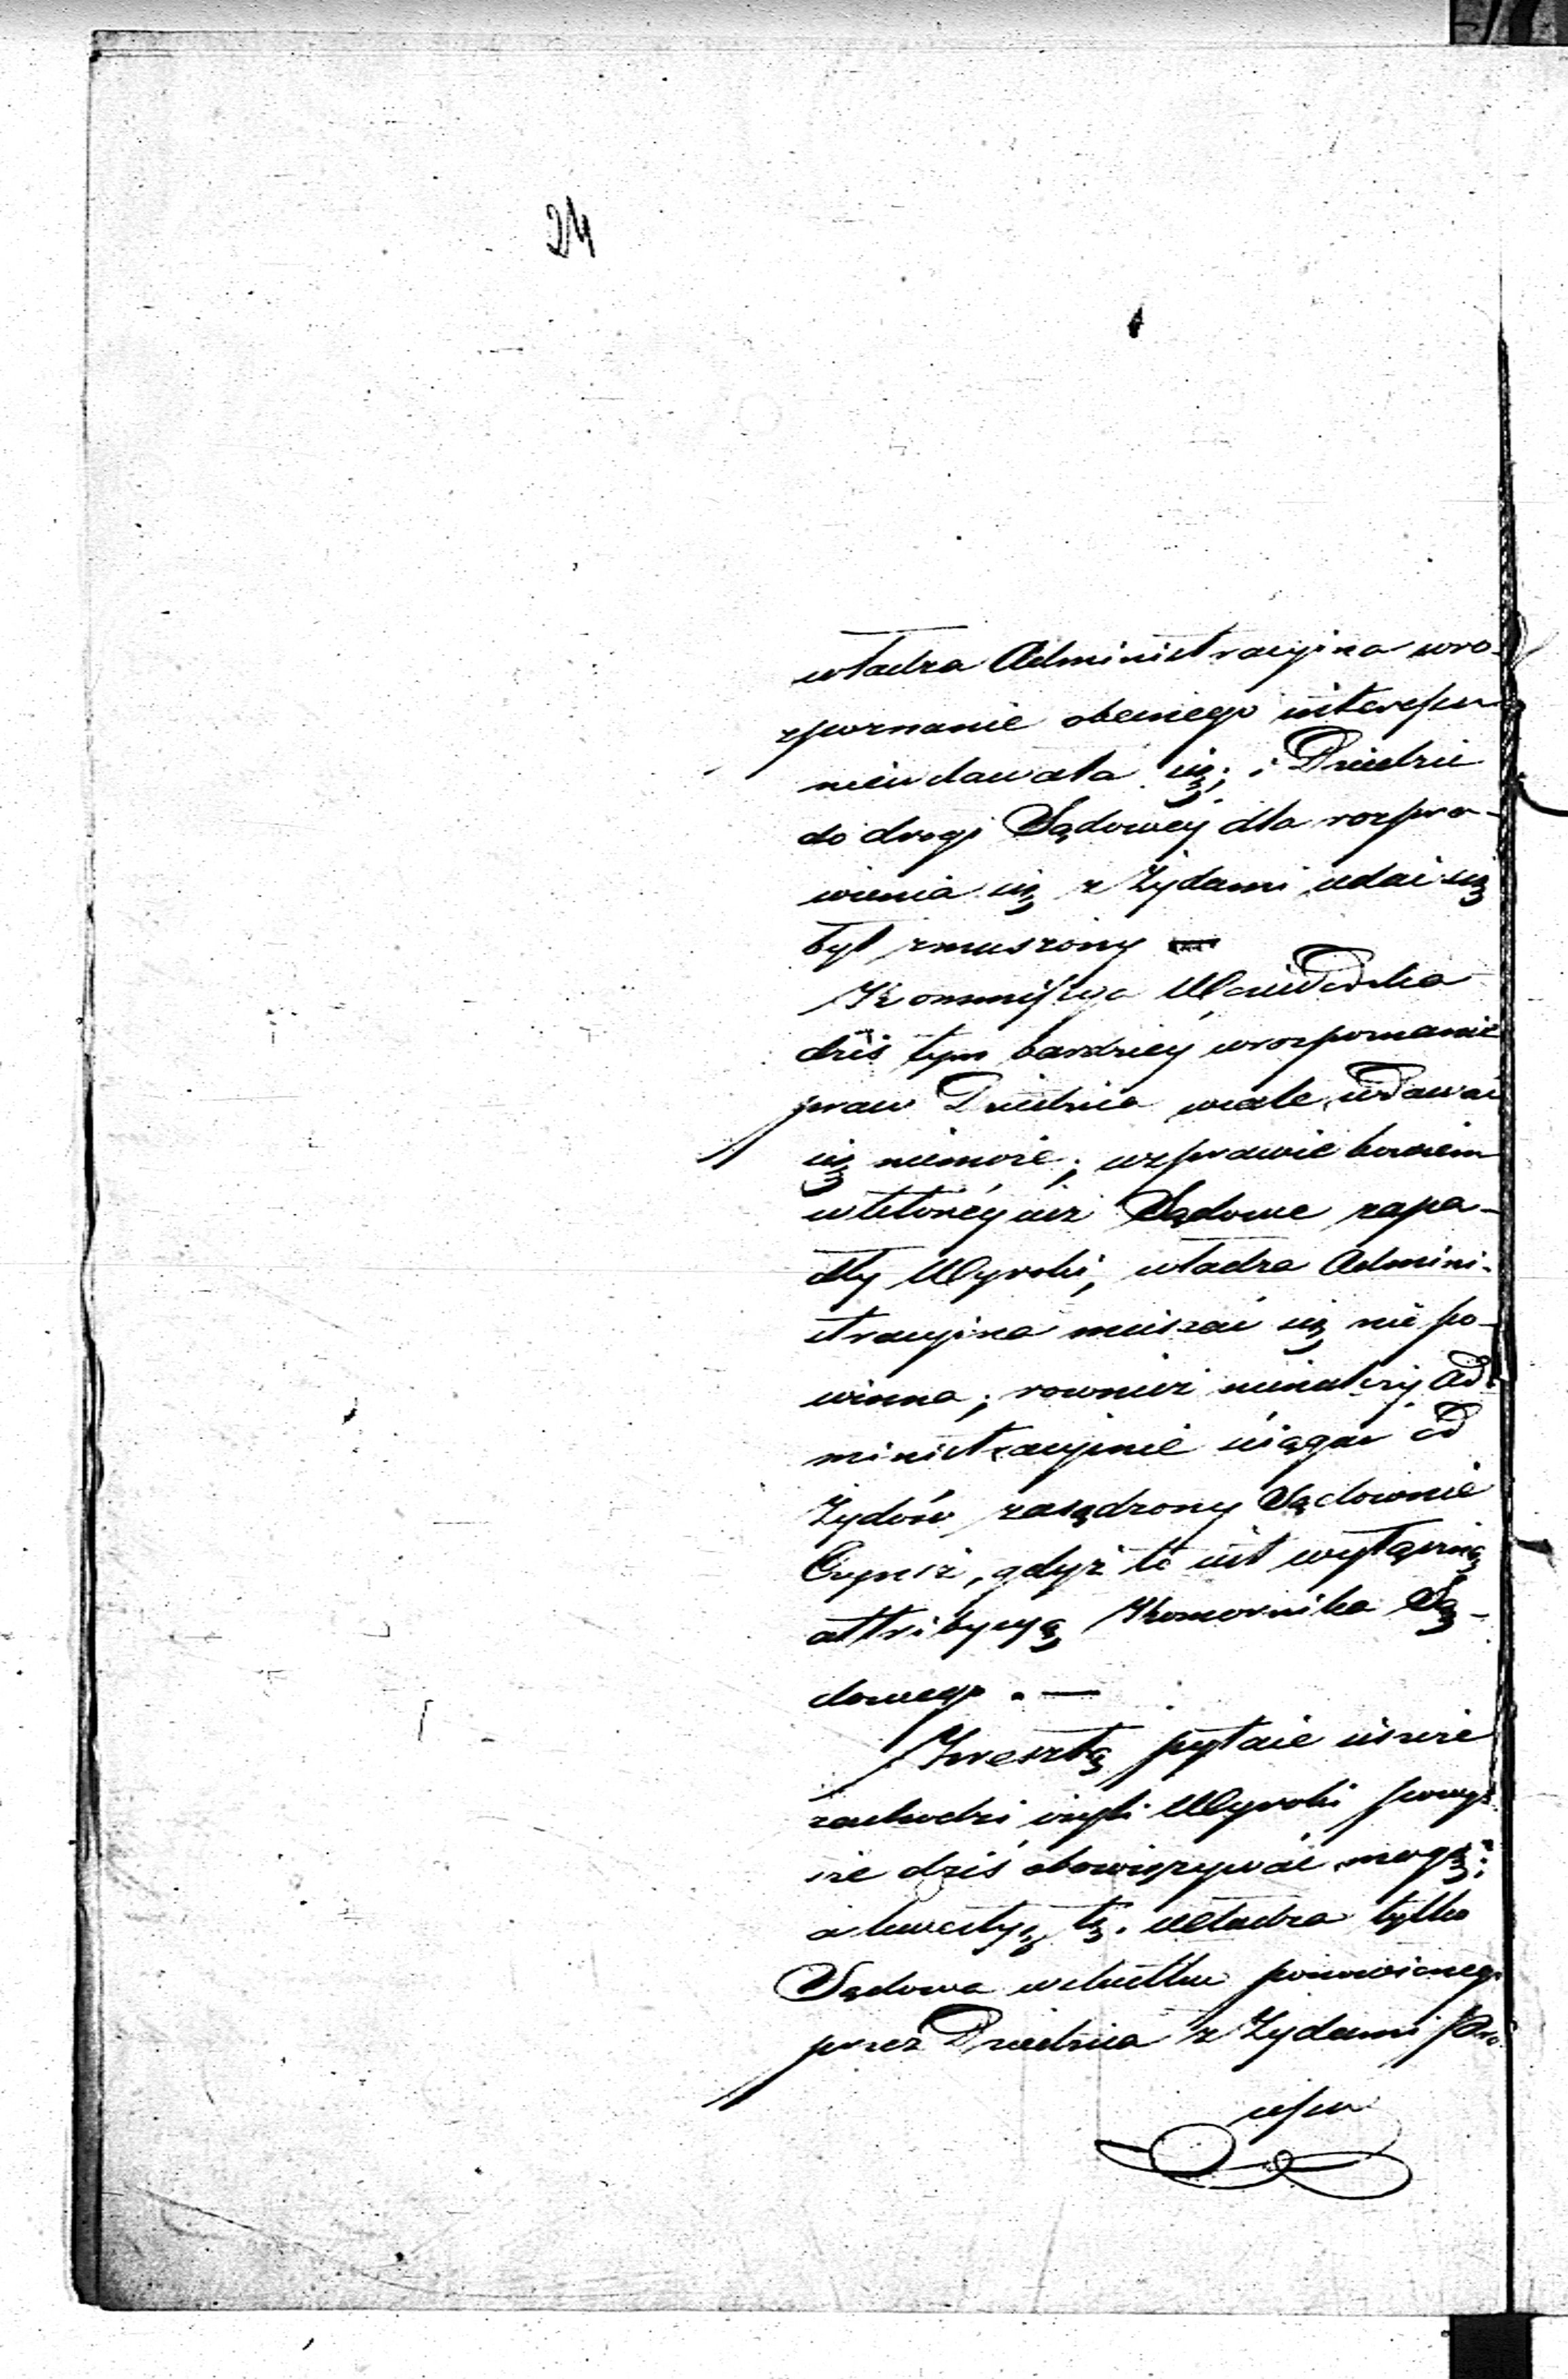 24
władza Administracyina wro-
zpoznanie obecnego interessu
nieudawała się; i Dziedzic
do drogi Sądowéy dla rozpra-
wienia się z Żydami udać się
był zmuszony
Kommissya Woiewódzka
dziś tym bardziey wrozpoznanie
praw Dziedzica wcale wdawać
się niemoże; wsprawie bowiem
wktóréy iuż Sądowe zapa-
dły Wyroki, władza Admini-
stracyina mieszać się nie po-
winna; rownież nienależy Ad-
ministracyinie ściągać od
Żydów zasądzony Sądownie
Czynsz, gdyż to iest wyłączną
attribucyą Komornika Są-
dowego. —
Zresztą pytanie ieszcze
zachodzi czyli Wyroki powyż
sze dziś obowiązywać mogą;
a kwestyą tę. Władza tylko
Sądowa wskutku ponowionego
przez Dziedzica z Żydami Pro
cessu